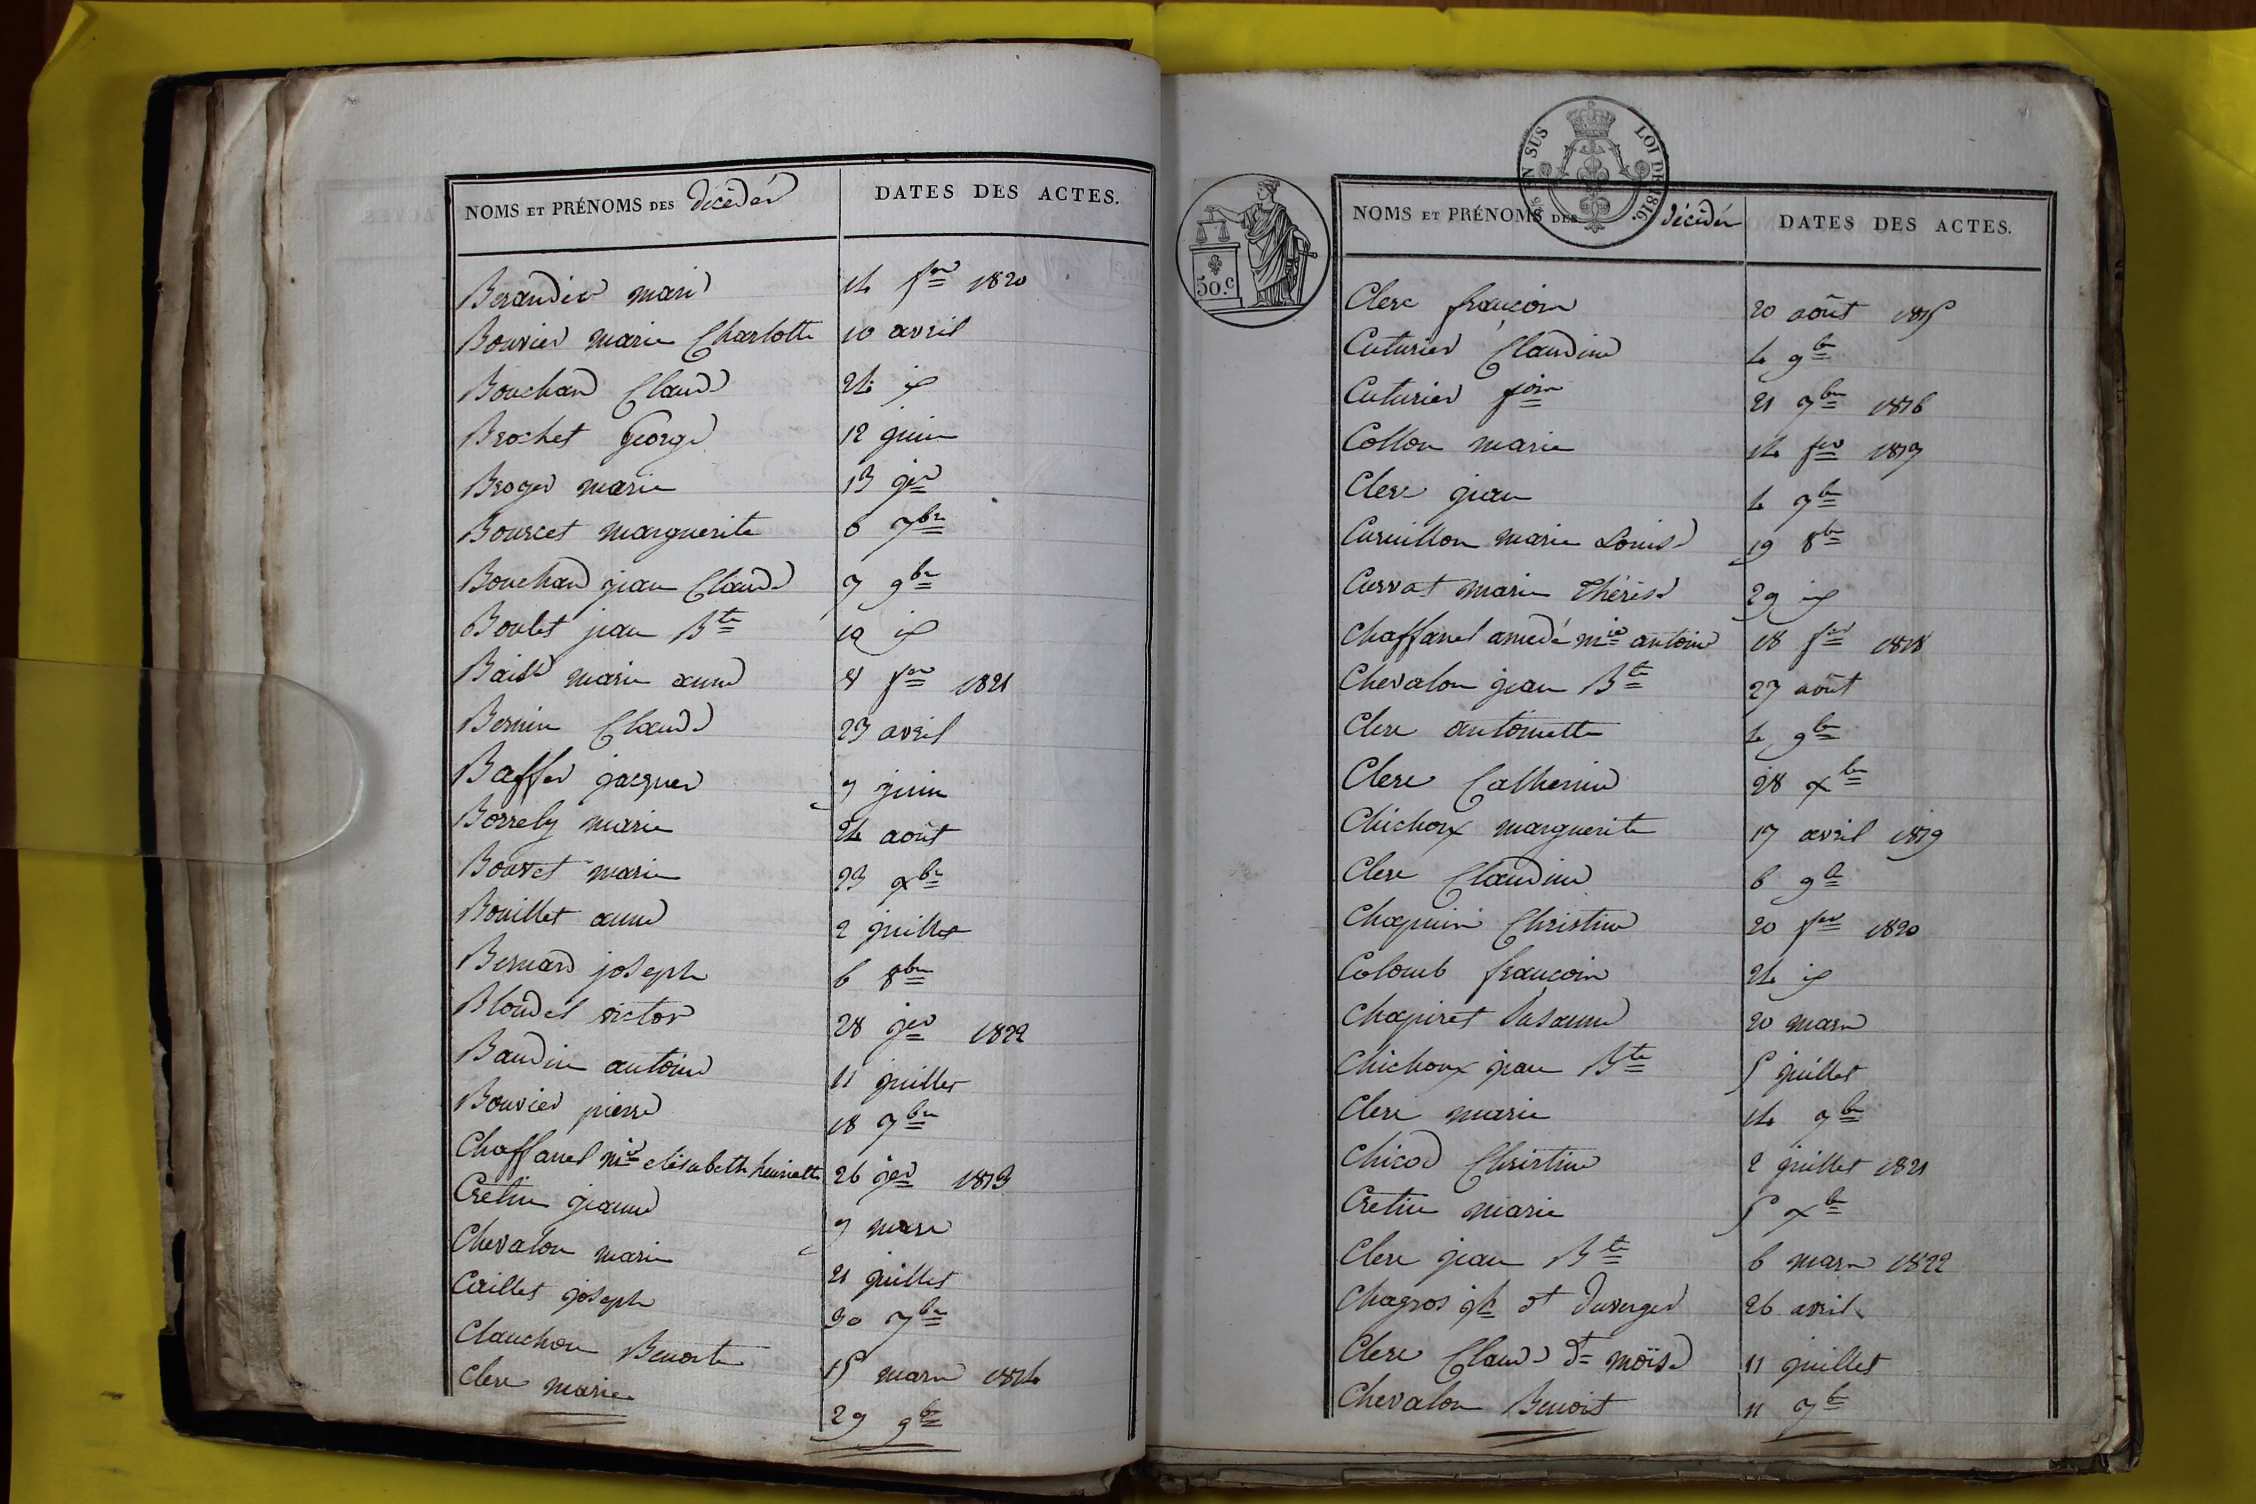 NOMS ET PRÉNOMS DES décédés DATES DES ACTES.
Beraudier marie 14 fer 1820
Bouvier marie Charlotte 10 avril
Bouchard Claude 24 id
Brochet George 12 juin
Broger marie 13 jer
Bourcet marguerite 6 7bre
Bouchard jean Claude 7 9bre
Boulet jean Bte 19 id
marie anne 8 fer 1821
Bernin Claude 23 avril
Baffer jacques 9 juin
Borrely marie 24 août
Bouvet marie 23 xbre
Bouillet anne 2 juillet
Bernard joseph 6 8bre
Blondel victor 28 jer 1822
Baudin antoine 11 juillet
Bouvier pierre 18 7bre
Chaffanel mie elisabeth henriette 26 jer 1813
Cretin jeanne 9 mars
Chevalon marie 21 juillet
Caillet joseph 30 7bre
Clauchon Benoite 15 mars 1814
Clerc marie 29 9bre
EN SUS LOI DE 1816.
50.c
NOMS ET PRÉNOMS DES décédés DATES DES ACTES.
Clerc françois 20 août 1815
Cuturier Claudine 4 9bre
Cuturier fois 21 7bre 1816
Collon marie 14 fer 1817
Clerc jean 4 7bre
Curvillon marie Louise 19 8bre
Curvat marie thérèse 29 id
Chaffanel amedé mie antoine 18 fer 1818
Chevalon jean Bte 27 août
Clerc antoinette 4 9bre
Clerc Catherine 28 xbre
Chichoux marguerite 17 avril 1819
Clerc Claudine 6 9bre
Chapuin Christine 20 fer 1820
Colomb françois 24 id
Chapiret Susanne 20 mars
Chichoux jean Bte 5 juillet
Clerc marie 14 7bre
Chicod Christine 2 juillet 1821
Cretin marie 5 xbre
Clerc jean Bte 6 mars 1822
Chagros jh dt duverger 26 avril
Clerc Claude dt moïse 11 juillet
Chevalon Benoit 11 7bre